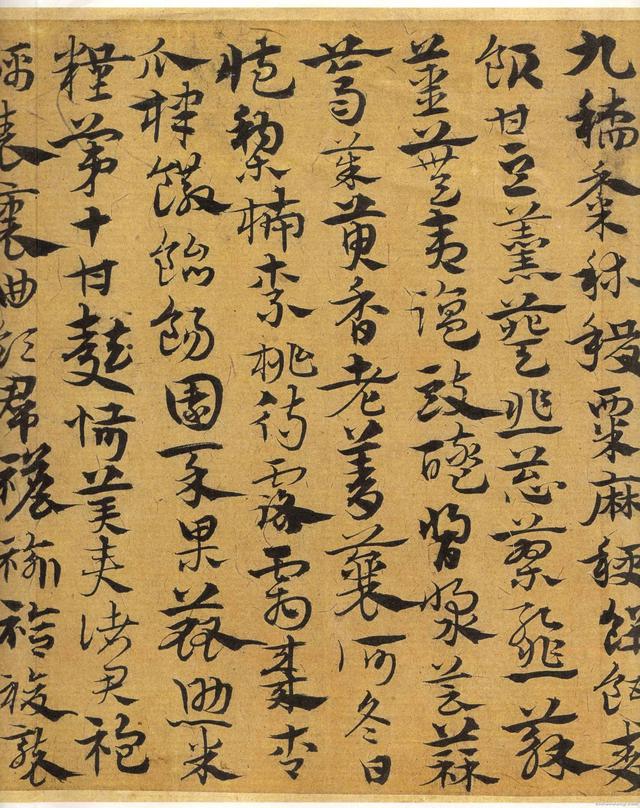 九稻黍秫稷粟麻秔餅餌麥
飯甘豆羹葵韭葱蓼䪥蘇
薑蕪荑塩豉醯醬漿芸蒜
茱萸香老菁蘘荷冬日
藏梨柿柰桃待露霜棗杏
瓜棣饊飴餳園菜果蓏助米
糧第十甘麩恬美奏諸君袍
襦表裏曲領帬襜褕袷複褶